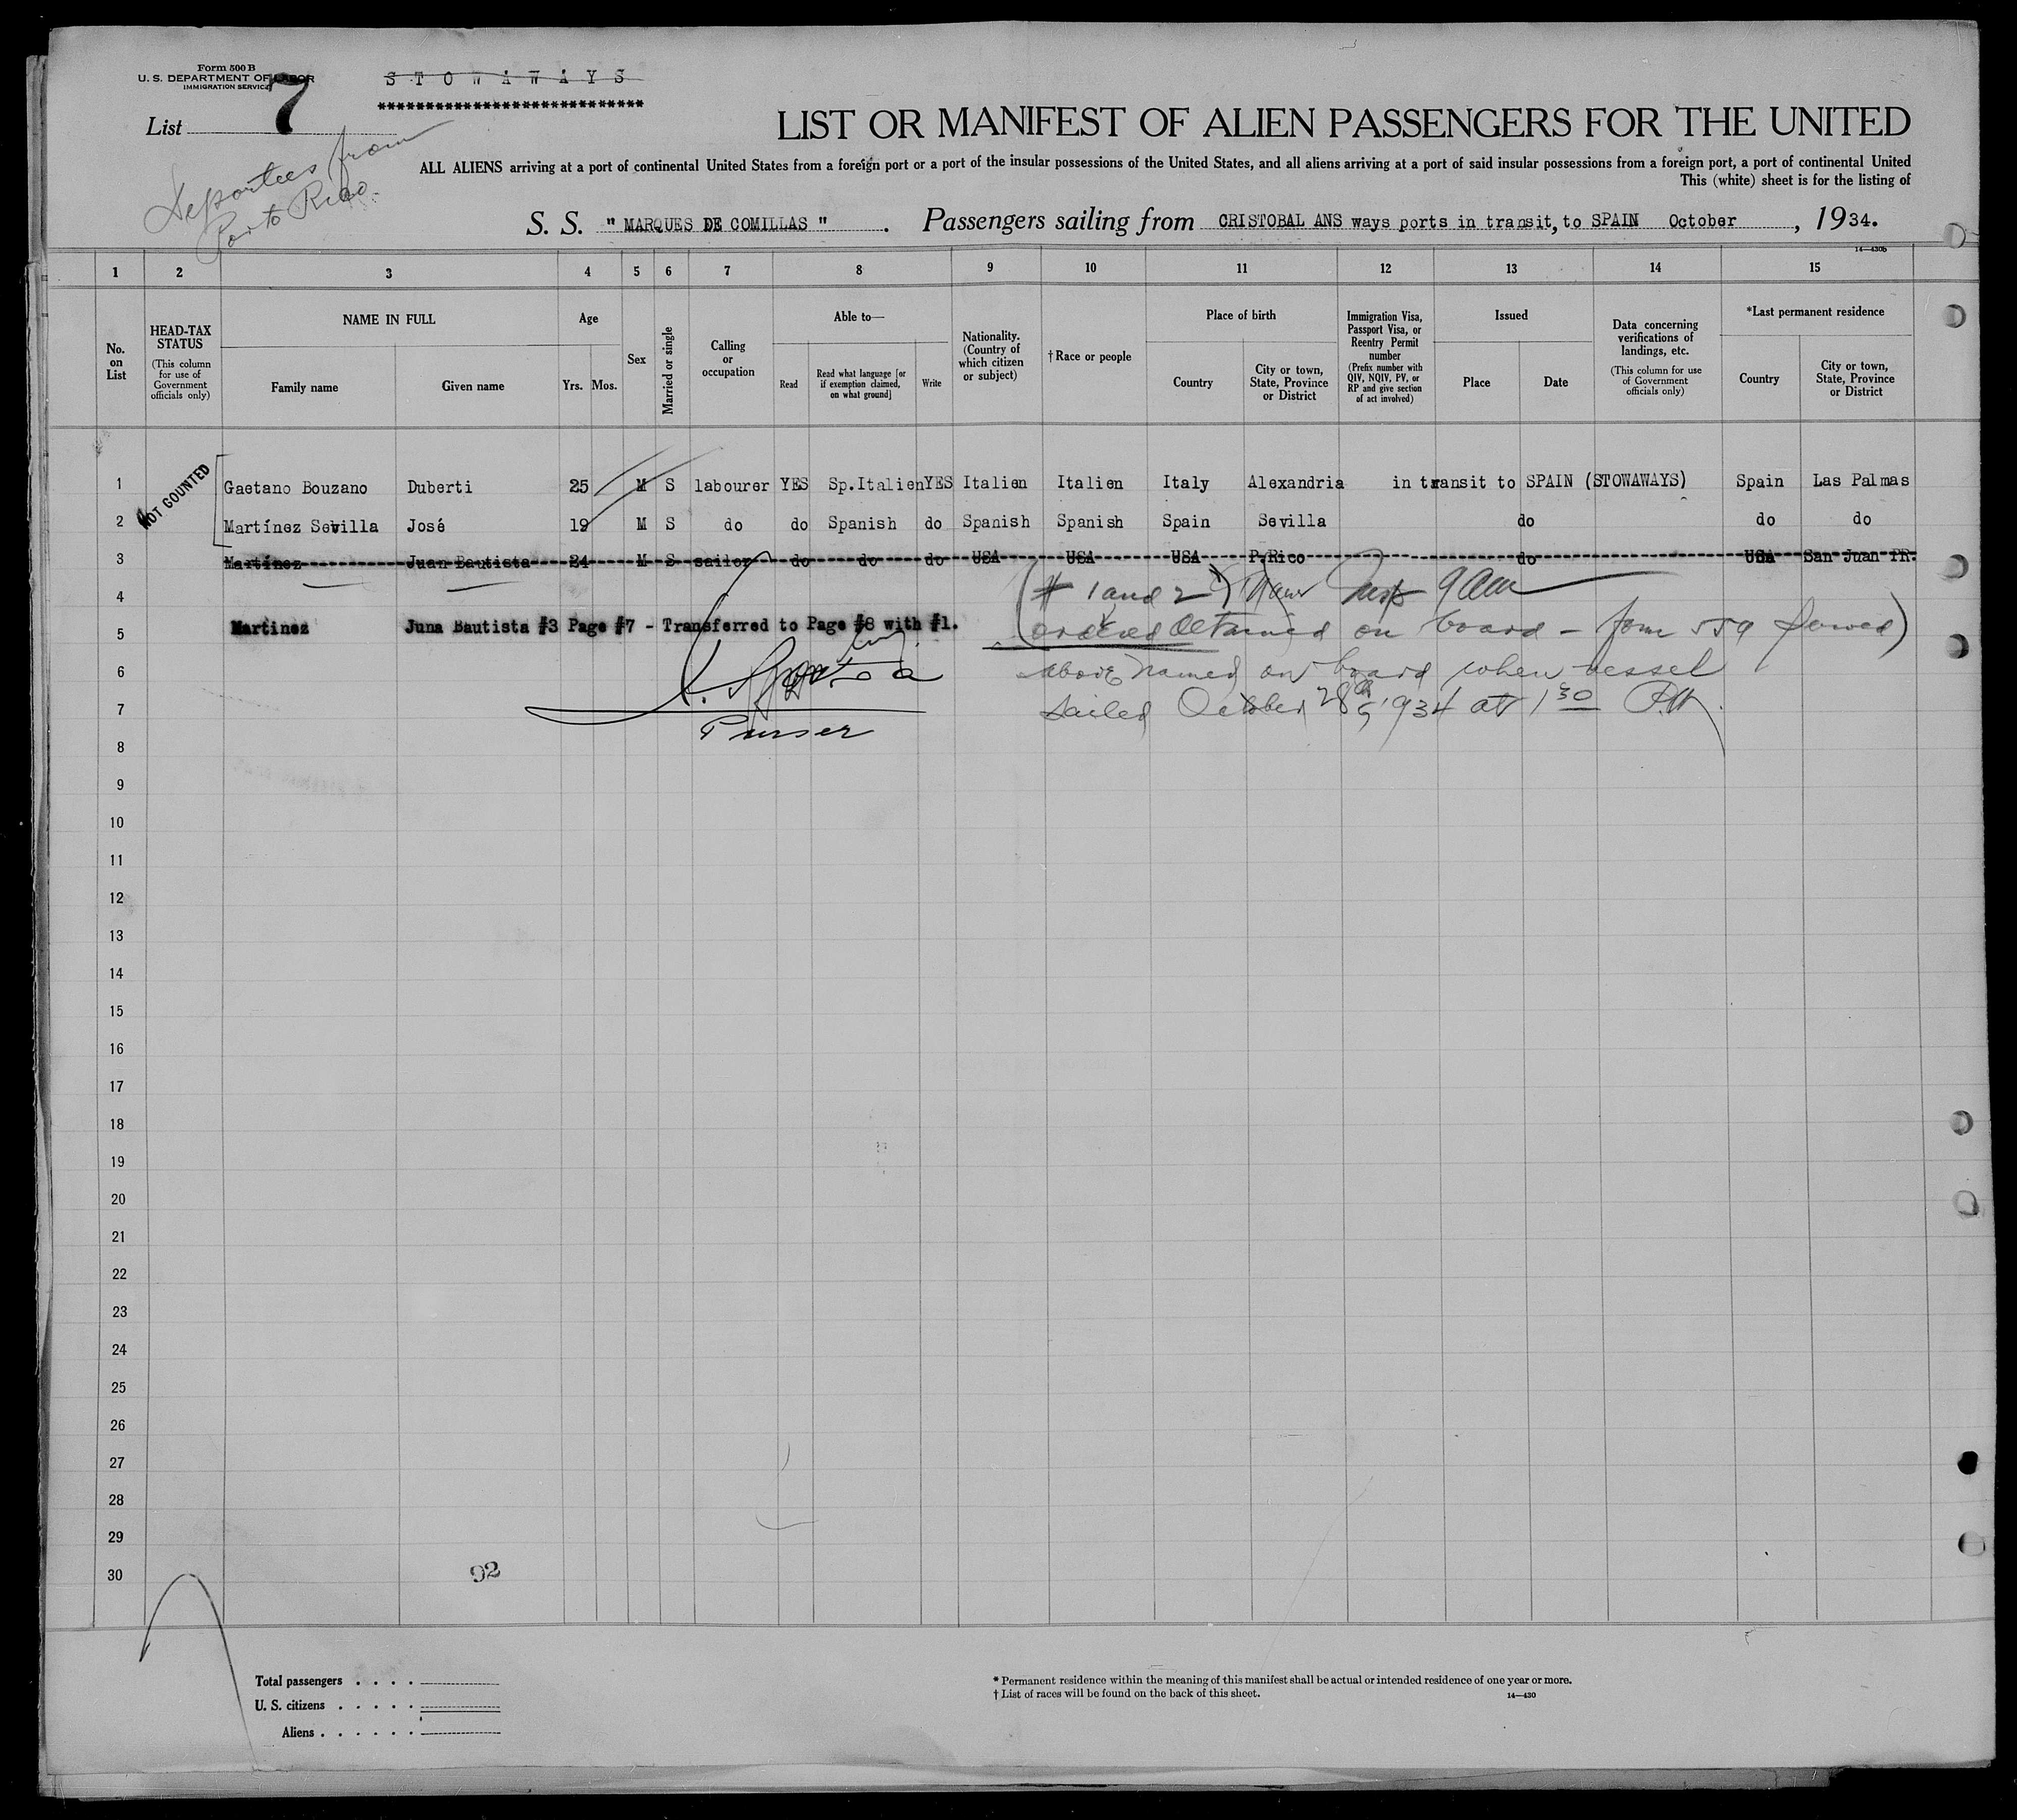 Form 500 B
U. S. DEPARTMENT OF LABOR
IMMIGRATION SERVICE
S T O W A W A Y S
***************************
List 7
Deportees from
Porto Rico
LIST OR MANIFEST OF ALIEN PASSENGERS FOR THE UNITED
ALL ALIENS arriving at a port of continental United States from a foreign port or a port of the insular possessions of the United States, and all aliens arriving at a port of said insular possessions from a foreign port, a port of continental United
This (white) sheet is for the listing of
S. S. " MARQUES DE COMILLAS " . Passengers sailing from CRISTOBAL ANS ways ports in transit, to SPAIN October , 1934.
14—430b
1 2 3 4 5 6 7 8 9 10 11 12 13 14 15
No. on List
HEAD-TAX STATUS
(This column for use of Government officials only)
NAME IN FULL
Family name
Given name
Age
Yrs. Mos.
Sex
Married or single
Calling or occupation
Able to—
Read
Read what language [or if exemption claimed, on what ground]
Write
Nationality. (Country of which citizen or subject)
† Race or people
Place of birth
Country
City or town, State, Province or District
Immigration Visa, Passport Visa, or Reentry Permit number
(Prefix number with QIV, NQIV, PV, or RP and give section of act involved)
Issued
Place
Date
Data concerning verifications of landings, etc.
(This column for use of Government officials only)
*Last permanent residence
Country
City or town, State, Province or District
NOT COUNTED
1 Gaetano Bouzano Duberti 25 M S labourer YES Sp.Italien YES Italien Italien Italy Alexandria in transit to SPAIN (STOWAWAYS) Spain Las Palmas
2 Martínez Sevilla José 19 M S do do Spanish do Spanish Spanish Spain Sevilla do do do
3 Martínez Juan Bautista 24 M S sailor do do do USA USA USA P.Rico do USA San Juan PR.
4 (# 1 and 2
5 Martinez Juna Bautista #3 Page #7 - Transferred to Page #8 with #1.
ordered detained on board - form 559 served)
6 above named on board when vessel
7 sailed October 28th 1934 at 1 30 P.M.
Purser
8
9
10
11
12
13
14
15
16
17
18
19
20
21
22
23
24
25
26
27
28
29
30
92
Total passengers . . . .
U. S. citizens . . . . .
Aliens . . . . . .
* Permanent residence within the meaning of this manifest shall be actual or intended residence of one year or more.
† List of races will be found on the back of this sheet.
14—430